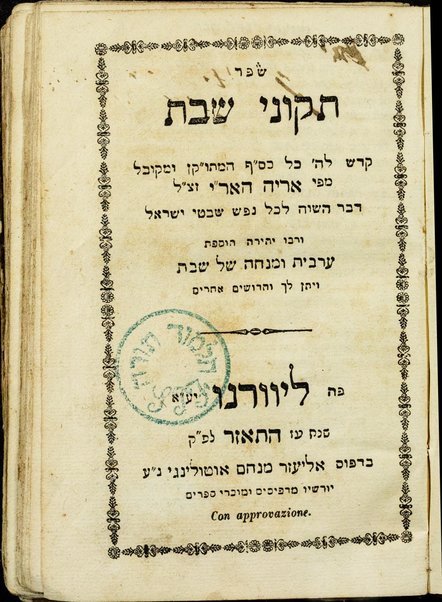 ספר
תקוני שבת
קדש לה׳ כל כס״ף המתוקן ומקובל
מפי אריה האר״י זצ״ל
דבר השוה לכל נפש שבטי ישראל
ורבו יתירה הוספת
ערבית ומנחה של שבת
ויתן לך וחדושים אחרים
תלמוד תורה
פה ליוורנו יע״א
שנת עז התאזר לפ״ק
בדפוס אליעזר מנחם אוטולינגי נ״ע
יורשיו מדפיסים ומוכרי ספרים
Con approvazione.